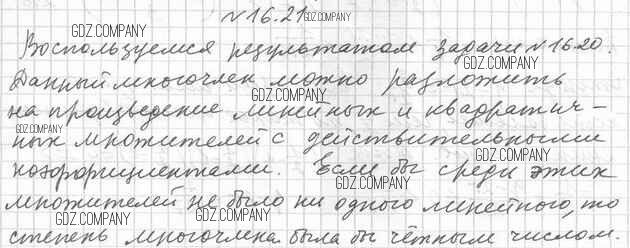 №16.21 GDZ.COMPANY
GDZ.COMPANY
Воспользуемся результатом задачи №16.20.
GDZ.COMPANY
Данный многочлен можно разложить
GDZ.COMPANY
на произведение линейных и квадратич-
GDZ.COMPANY
ных множителей с действительными
GDZ.COMPANY
коэффициентами. Если бы среди этих
GDZ.COMPANY
множителей не было ни одного линейного, то
GDZ.COMPANY GDZ.COMPANY
степень многочлена была бы чётным числом.